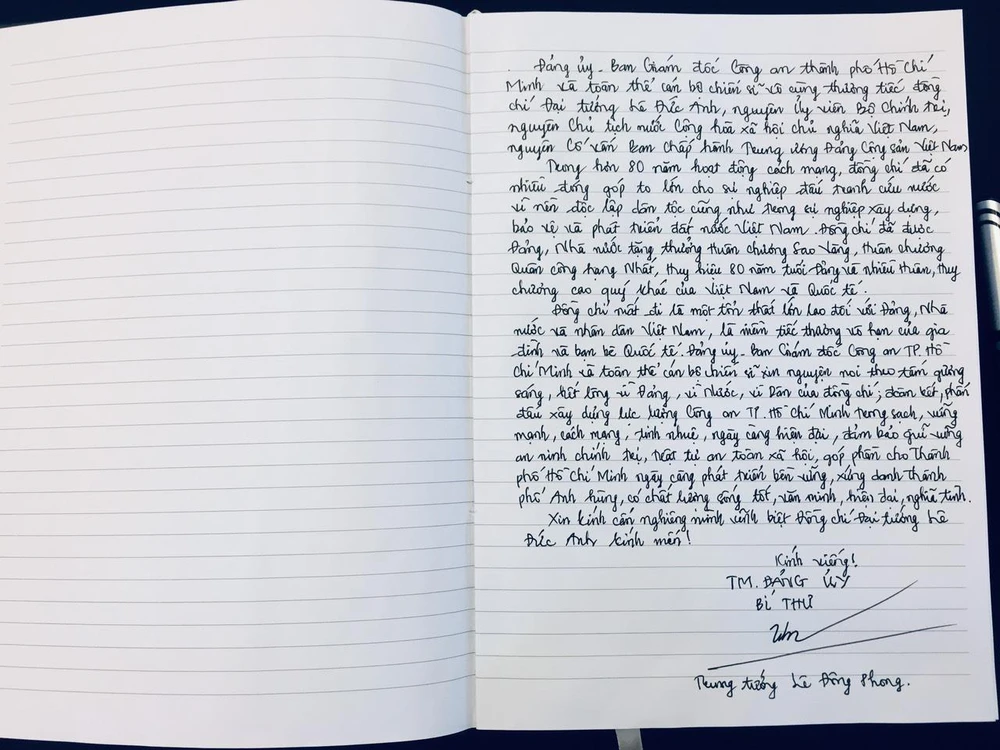 Đảng ủy - Ban Giám đốc Công an thành phố Hồ Chí
Minh và toàn thể cán bộ chiến sĩ vô cùng thương tiếc đồng
chí Đại tướng Lê Đức Anh, nguyên Ủy viên Bộ Chính trị,
nguyên Chủ tịch nước Cộng hòa xã hội chủ nghĩa Việt Nam,
nguyên Cố vấn Ban Chấp hành Trung ương Đảng Cộng sản Việt Nam
Trong hơn 80 năm hoạt động cách mạng, đồng chí đã có
nhiều đóng góp to lớn cho sự nghiệp đấu tranh cứu nước
vì nền độc lập dân tộc cũng như trong sự nghiệp xây dựng,
bảo vệ và phát triển đất nước Việt Nam. Đồng chí đã được
Đảng, Nhà nước tặng thưởng Huân chương Sao Vàng, Huân chương
Quân công hạng Nhất, Huy hiệu 80 năm tuổi Đảng và nhiều Huân, Huy
chương cao quý khác của Việt Nam và Quốc tế.
Đồng chí mất đi là một tổn thất lớn lao đối với Đảng, Nhà
nước và nhân dân Việt Nam, là niềm tiếc thương vô hạn của gia
đình và bạn bè Quốc tế. Đảng ủy - Ban Giám đốc Công an TP. Hồ
Chí Minh và toàn thể cán bộ chiến sĩ xin nguyện noi theo tấm gương
sáng, hết lòng vì Đảng, vì Nước, vì Dân của đồng chí; đoàn kết, phấn
đấu xây dựng lực lượng Công an TP. Hồ Chí Minh trong sạch, vững
mạnh, cách mạng, tinh nhuệ, ngày càng hiện đại, đảm bảo giữ vững
an ninh chính trị, trật tự an toàn xã hội, góp phần cho Thành
phố Hồ Chí Minh ngày càng phát triển bền vững, xứng danh Thành
phố Anh hùng, có chất lượng sống tốt, văn minh, hiện đại, nghĩa tình.
Xin kính cẩn nghiêng mình vĩnh biệt Đồng chí Đại tướng Lê
Đức Anh kính mến!
Kính viếng!
TM. ĐẢNG ỦY
BÍ THƯ
Trung tướng Lê Đông Phong.